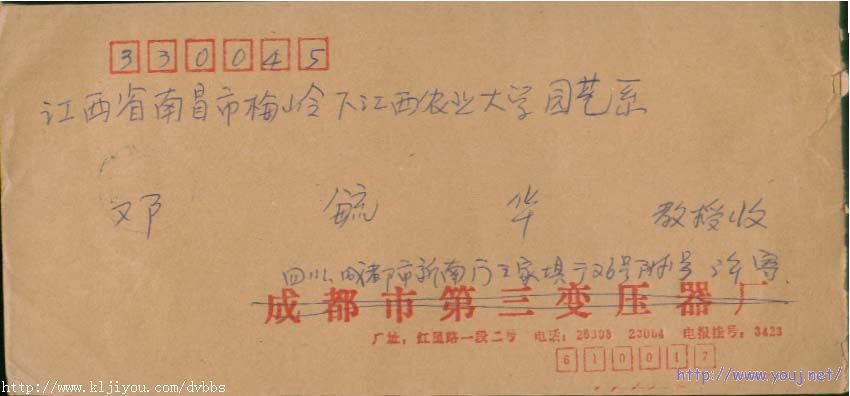 330045
江西省南昌市梅岭下江西农业大学园艺系
邓毓华 教授收
四川成都市新南门王家坝
成都市第三变压器厂
厂址：红星路一段二号 电话：25398 23064 电报挂号：3423
610017
http://www.kljiyou.com/dvbbs
http://www.youj.net/